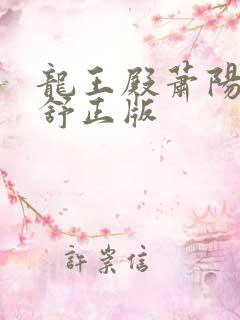 龍王殿蕭陽
舒正版
許崇信